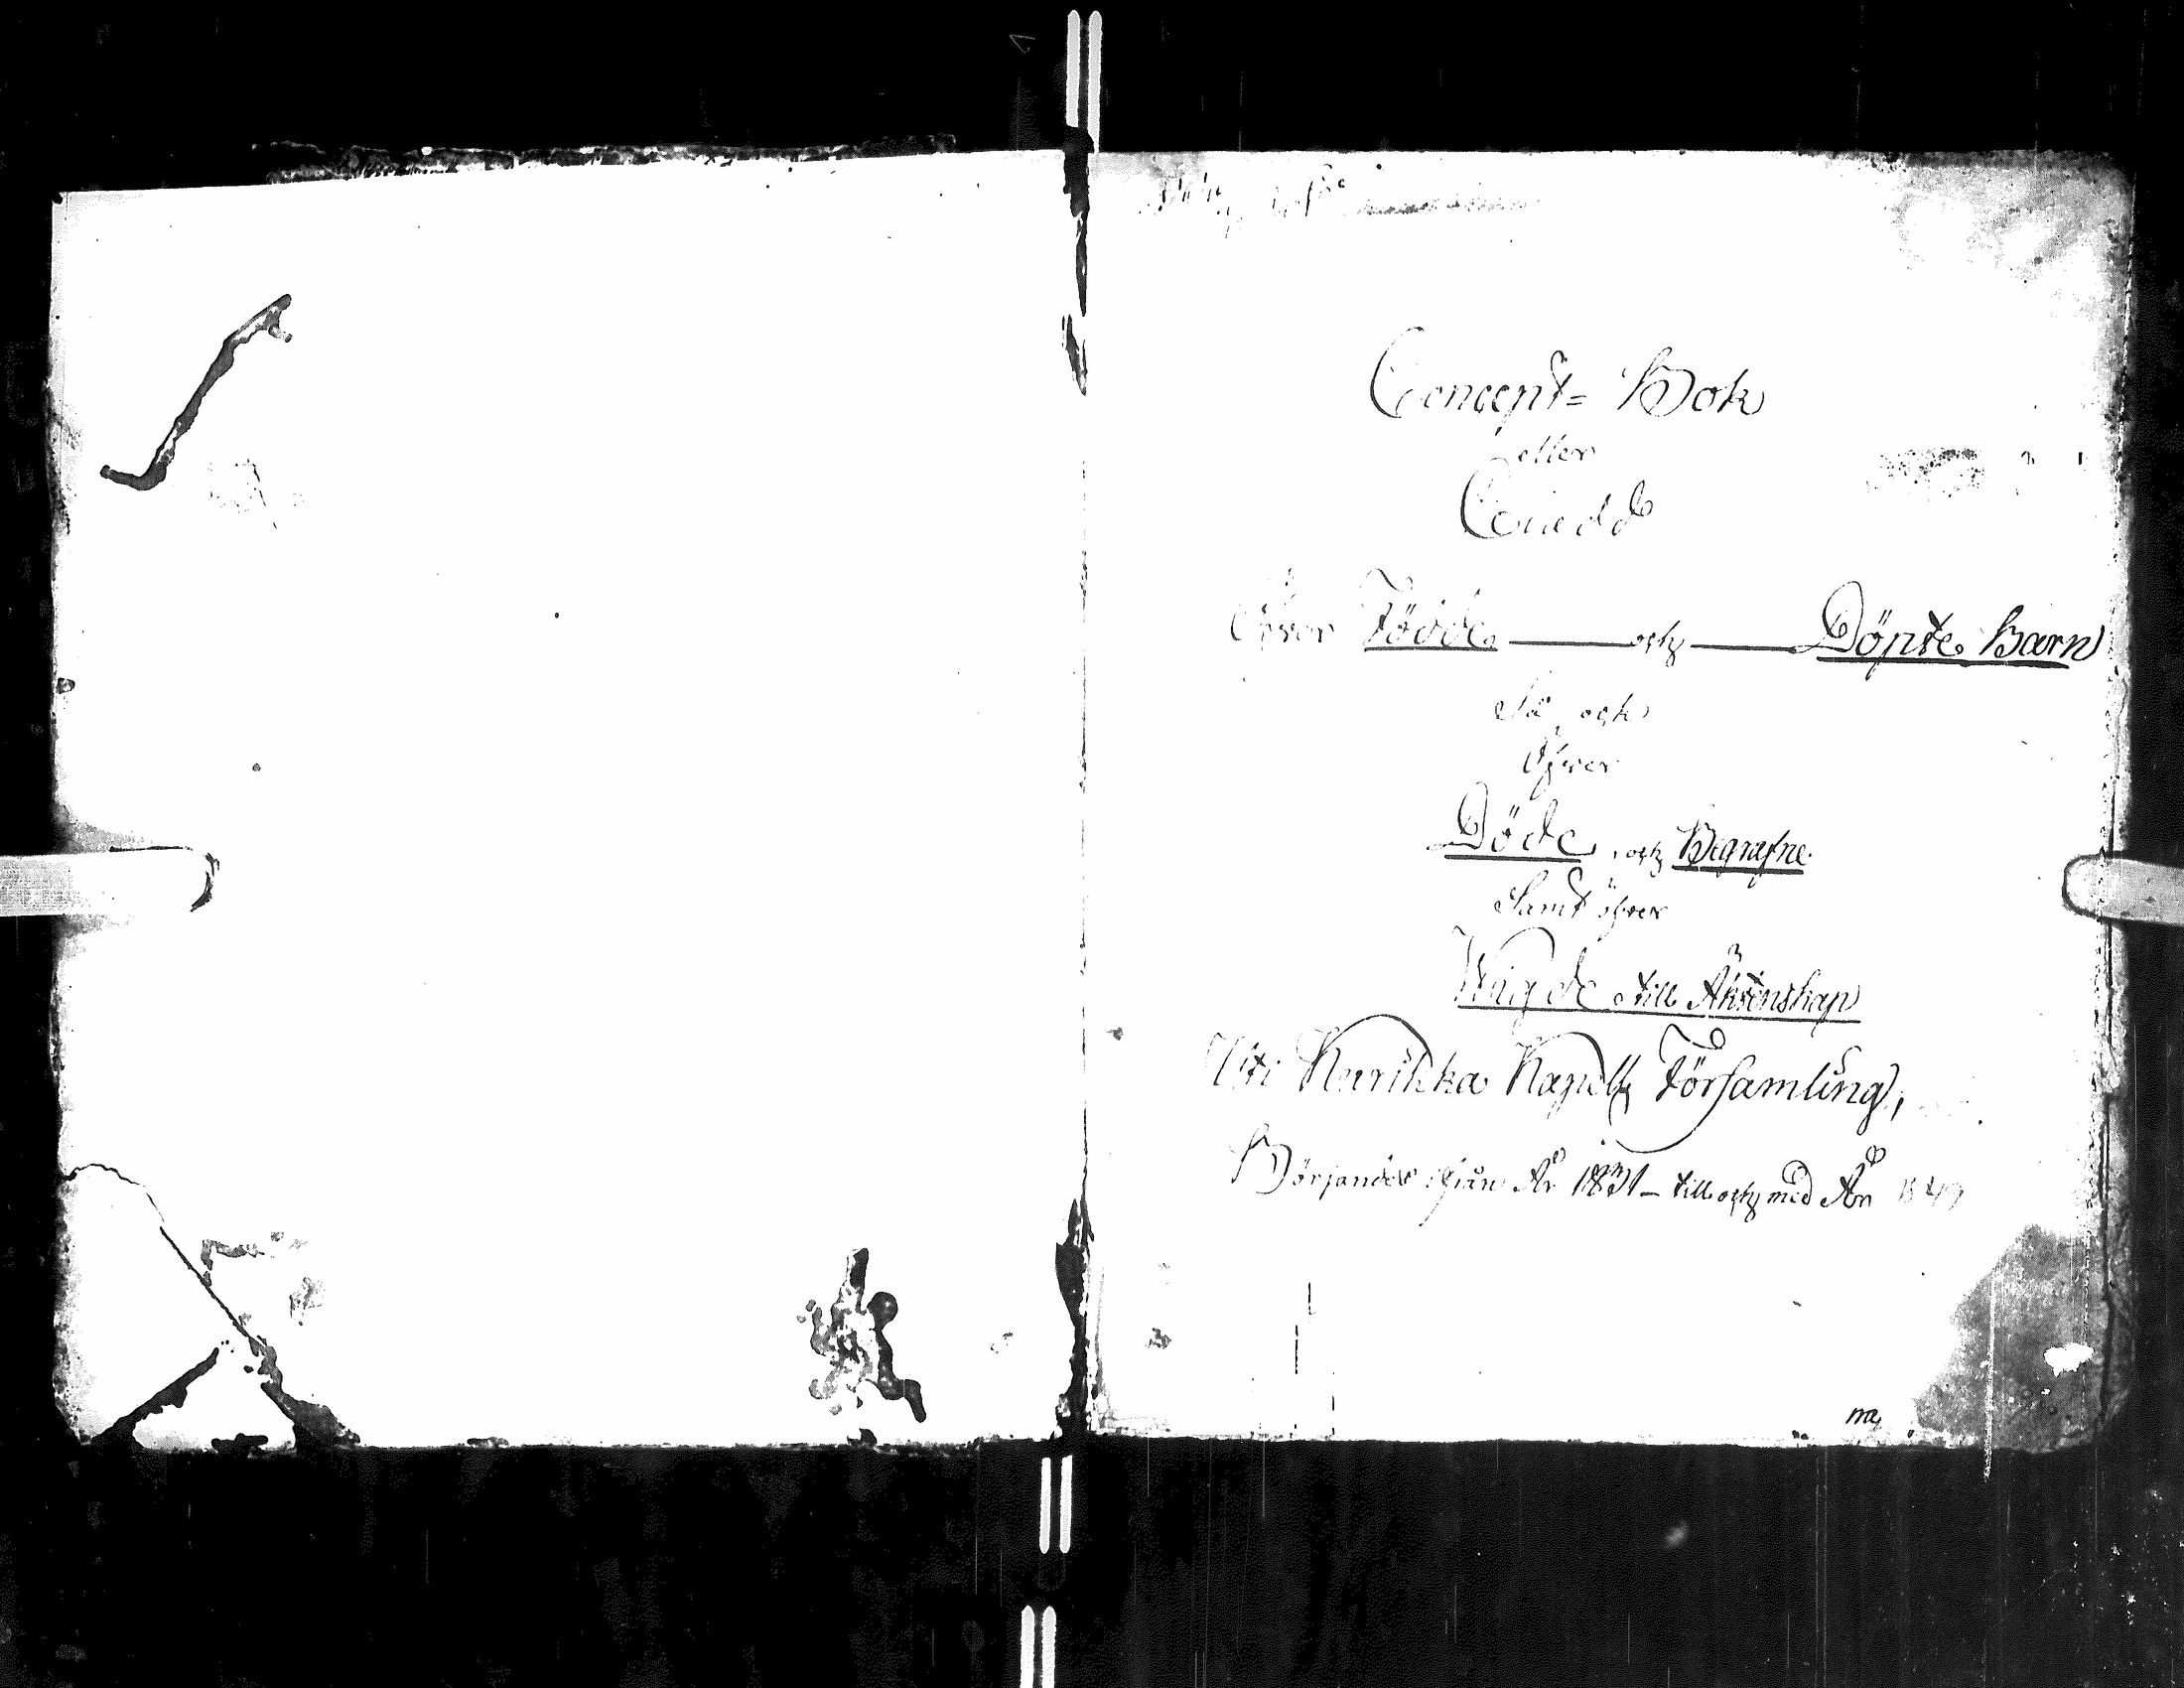 Concept= Bok
eller
Cladd
Öfver Födde och Döpte Barn
Så ock
Öfver
Döde och Begrafne
Samt öfver
Wigde till Äktenskap
Uti Karihka Kapells Församling,
Börjandes ifrån År 1831 – till och med År 1849